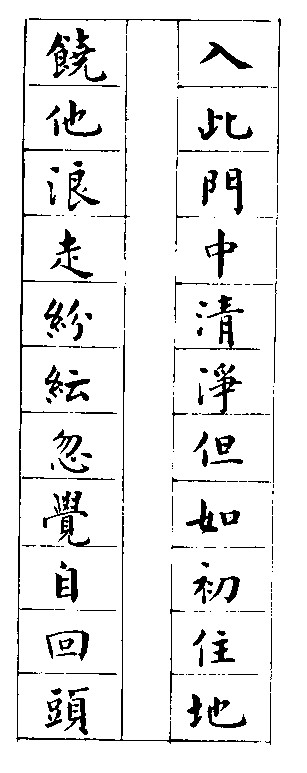 入此門中清淨但如初住地
饒他浪走紛紜忽覺自回頭